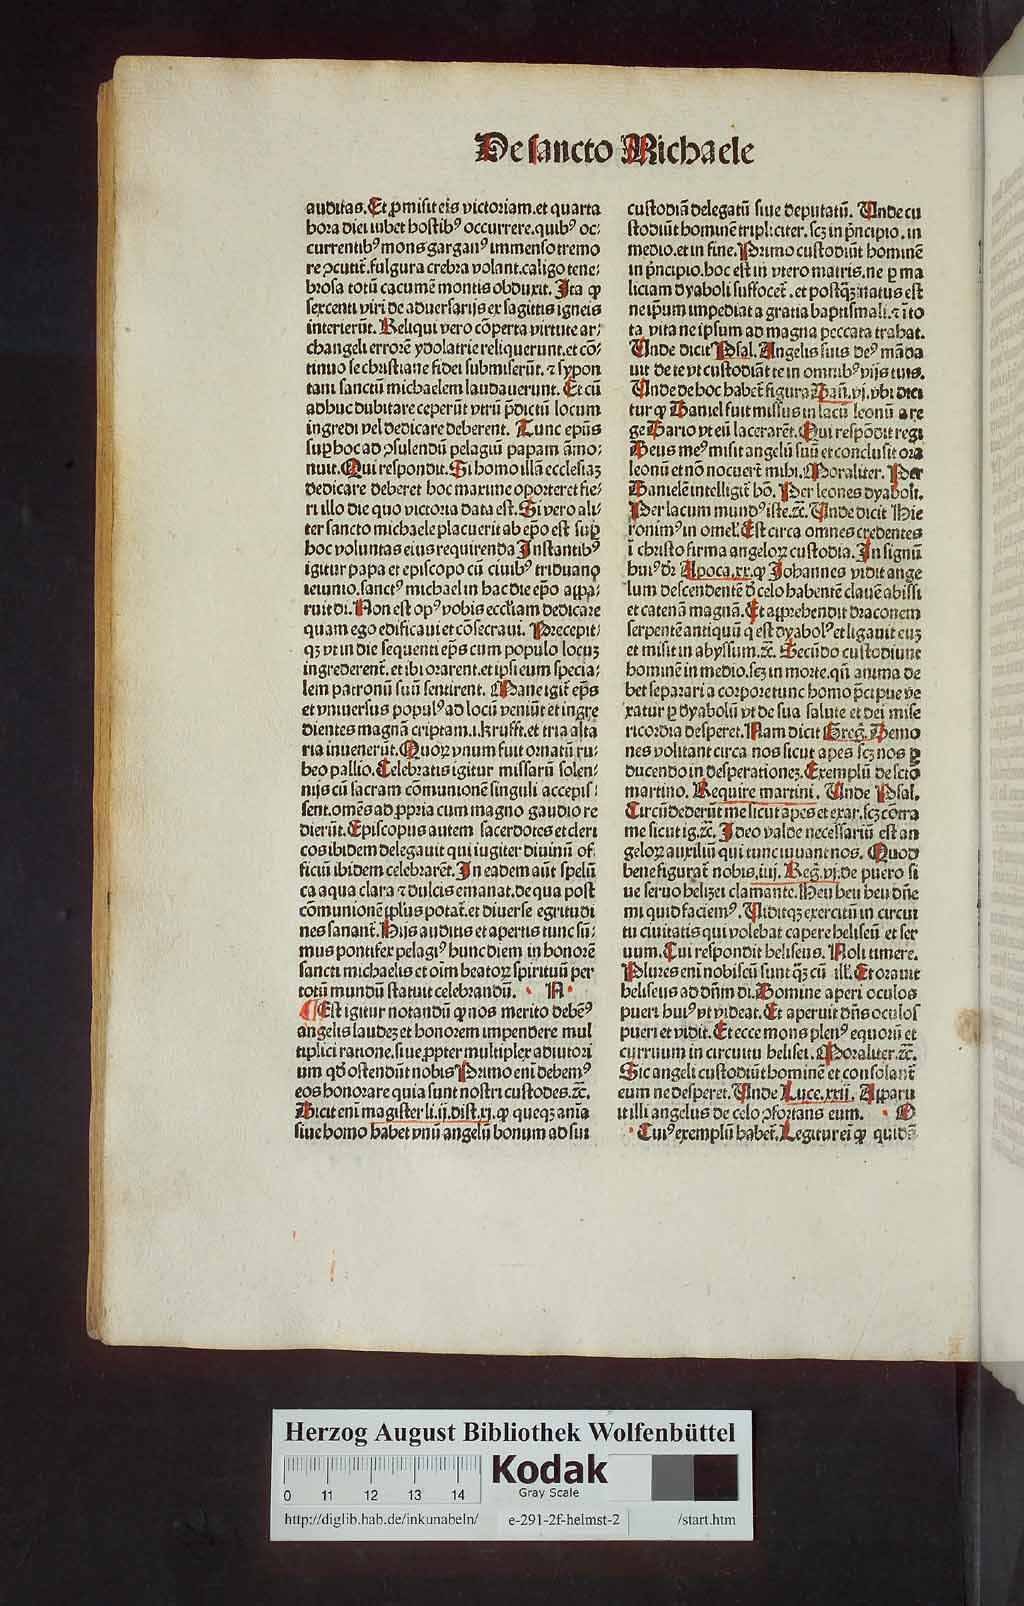 De sancto Michaele
auditas. Et ꝓmisit eis victoriam. et quarta
hora diei iubet hostibꝰ occurrere. quibꝰ oc⸗
currentibꝰ mons garganꝰ immenso tremo
re ꝯcutit̄. fulgura crebra volant. caligo tene⸗
brosa totū cacumē montis obduxit. Ita ꝙ
sexcenti viri de aduersarijs ex sagittis igneis
interierūt. Reliqui vero cōperta virtute ar⸗
changeli errorē ydolatrie reliquerunt. et cō⸗
tinuo se christiane fidei submiserūt. ⁊ sypon
tani sanctū michaelem laudauerunt. Et cū
adhuc dubitare ceperūt vtrū p̄dictū locum
ingredi vel dedicare deberent. Tunc ep̄us
suꝑ hoc ad ꝯsulendū pelagiū papam āmo⸗
nuit. Qui respondit. Si homo illā ecclesiaꝫ
dedicare deberet hoc maxime oporteret fie⸗
ri illo die quo victoria data est. Si vero ali⸗
ter sancto michaele placuerit ab ep̄o est suꝑ
hoc voluntas eius requirenda Instantibꝰ
igitur papa et episcopo cū ciuibꝰ triduano
ieiunio. sanctꝰ michael in hac die ep̄o appa⸗
ruit di. Non est opꝰ vobis ecc̄iam dedicare
quam ego edificaui et cōsecraui. Precepit⸗
qꝫ vt in die sequenti ep̄s cum populo locuꝫ
ingrederent̄. et ibi orarent. et ipsi eum specia⸗
lem patronū suū sentirent. Mane igit̄ ep̄s
et vniuersus populꝰ ad locū veniūt et ingre
dientes magnā criptam. i. krufft. et tria alta
ria inuenerūt. Quoꝝ vnum fuit ornatū ru⸗
beo pallio. Celebratis igitur missarū solen⸗
nijs cū sacram cōmunionē singuli accepis⸗
sent. omēs ad ꝓpria cum magno gaudio re
dierūt. Episcopus autem sacerdotes et cleri
cos ibidem delegauit qui iugiter diuinū of⸗
ficiū ibidem celebrarēt. In eadem aūt spelū
ca aqua clara ⁊ dulcis emanat. de qua post
cōmunionē ppl̄us potat̄. et diuerse egritudi
nes sanant̄. Hijs auditis et apertis tunc sū⸗
mus pontifex pelagiꝰ hunc diem in honorē
sancti michaelis et oīm beatoꝝ spirituū per
totū mundū statuit celebrandū. N
Est igitur notandū ꝙ nos merito debēꝰ
angelis laudeꝫ et honorem impendere mul
tiplici ratione. siue ꝓpter multiplex adiutori
um qd̄ ostendūt nobis Primo eni debemꝰ
eos honorare quia sunt nostri custodes. ⁊c̄.
Dicit eni magister li. ij. dist. xj. ꝙ queqꝫ aīa
siue homo habet vnū angelū bonum ad sui
custodiā delegatū siue deputatū. Unde cu
stodiūt hominē tripliciter. scꝫ in p̄ncipio. in
medio. et in fine. Primo custodiūt hominē
in p̄ncipio. hoc est in vtero matris. ne ꝑ ma
liciam dyaboli suffocet̄. et postqꝫ natus est
ne ip̄um impediat a gratia baptismali. ⁊ ī to
ta vita ne ipsum ad magna peccata trahat.
Unde dicit Psal. Angelis suis deꝰ māda
uit de te vt custodiāt te in omnibꝰ vijs tuis.
Unde de hoc habet̄ figura Dañ. vj. vbi dici
tur ꝙ Daniel fuit missus in lacū leonū a re
ge Dario vt eū lacerarēt. Qui respōdit regi
Deus meꝰ misit angelū suū et conclusit ora
leonū et nō nocuert̄ mihi. Moraliter. Per
Danielē intelligit̄ hō. Per leones dyaboli.
Per lacum mundꝰ iste. ⁊c̄. Unde dicit Hie
ronimꝰ in omel̓. Est circa omnes credentes
ī christo firma angeloꝝ custodia. In signū
huiꝰ dr̄ Apoca. xx. ꝙ Johannes vidit ange
lum descendentē d̓ celo habentē clauē abissi
et catenā magnā. Et apprehendit draconem
serpentē antiquū q̓ est dyabolꝰ et ligauit euꝫ
et misit in abyssum. ⁊c̄. Secūdo custodiunt
hominē in medio. scꝫ in morte. qn̄ anima de
bet separari a corpore tunc homo p̄cipue ve
xatur ꝑ dyabolū vt de sua salute et dei mise
ricordia desperet. Nam dicit Greg̓. Demo
nes volitant circa nos sicut apes scꝫ nos ꝑ
ducendo in desperationeꝫ. Exemplū de scto
martino. Require martini. Unde Psal.
Circūdederūt me sicut apes et exar. scꝫ contra
me sicut ig. ⁊c̄. Ideo valde necessariū est an
geloꝝ auxiliū qui tunc iuuant nos. Quod
bene figurat̄ nobis. iiij. Reg. vj. de puero si
ue seruo helizei clamante. Heu heu heu dn̄e
mi quid faciemꝰ. Uiditqꝫ exercitū in circui
tu ciuitatis qui volebat capere heliseū et ser
uum. Cui respondit heliseus. Noli timere.
Plures eni nobiscū sunt qꝫ cū ill̓. Et orauit
heliseus ad dn̄m di. Domine aperi oculos
pueri huiꝰ vt videat. Et aperuit dn̄s oculos
pueri et vidit. Et ecce mons plenꝰ equorū et
curruum in circuitu helisei. Moraliter. ⁊c̄.
Sic angeli custodiūt hominē et consolant̄
eum ne desperet. Unde Luce. xxij. Apparu
it illi angelus de celo ꝯfortans eum. O
Cuiꝰ exemplū habet̄. Legitur ei ꝙ quidā
Herzog August Bibliothek Wolfenbüttel
0 11 12 13 14
Kodak
Gray Scale
http://diglib.hab.de/inkunabeln/ e-291-2f-helmst-2 /start.htm